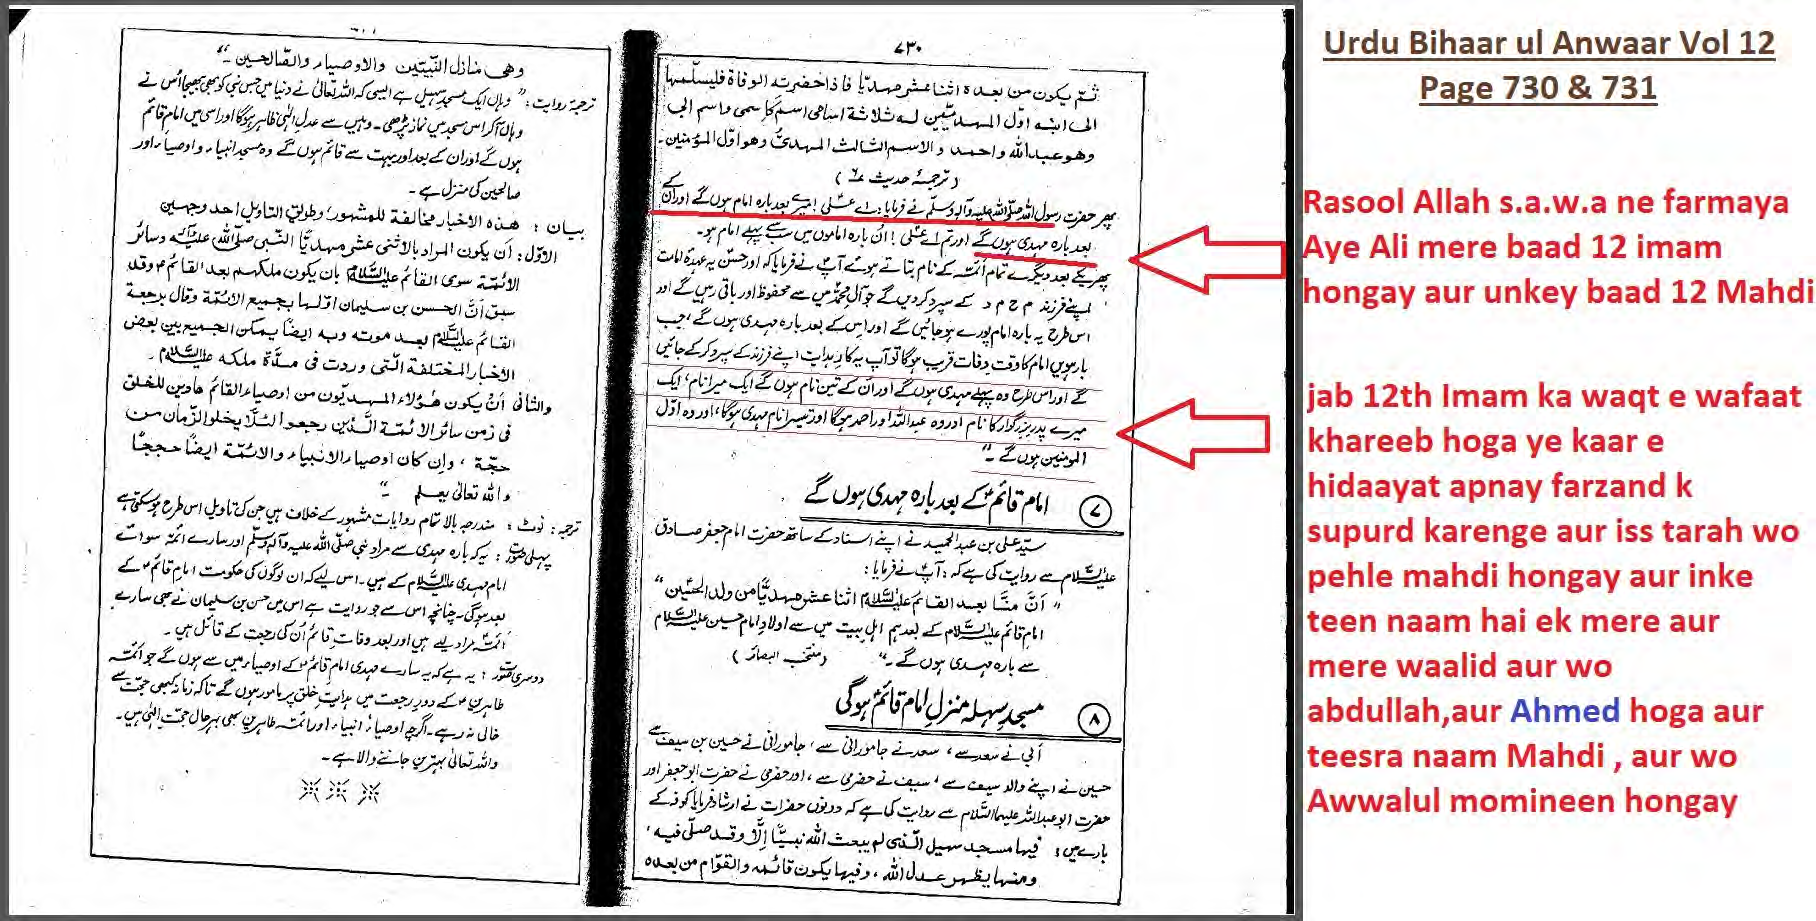 ۷۳۰
ثمّ یکون من بعدہ اثنا عشر مہدیّا فاذا حضرتہ الوفاة فلیسلّمہا
الی ابنہ اوّل المہدیّین لہ ثلاثة اسامی اسم کاسمی واسم ابی
وھو عبداللہ واحمد والاسم الثالث المہدیُّ وھو اوّل المؤمنین۔
(ترجمۂ حدیث ۶)
پھر حضرت رسول اللہ صلّی اللہ علیہ وآلہ وسلّم نے فرمایا: اے علی! میرے بعد بارہ امام ہوں گے اور ان کے
بعد بارہ مہدی ہوں گے اور تم اے علی! ان بارہ اماموں میں سب سے پہلے امام ہو۔
پھر یکے بعد دیگرے تمام ائمہ کے نام بتاتے ہوئے آپؐ نے فرمایا کہ اور حسن یہ عہدۂ امامت
اپنے فرزند م ح م د کے سپرد کردیں گے جو آل محمدؐ میں سے محفوظ اور باقی رہیں گے اور
اس طرح یہ بارہ امام پورے ہوجائیں گے اور اس کے بعد بارہ مہدی ہوں گے، جب
بارہویں امام کا وقت وفات قریب ہوگا تو آپ یہ کار ہدایت اپنے فرزند کے سپرد کرکے جائیں
گے اور اس طرح وہ پہلے مہدی ہوں گے اور ان کے تین نام ہوں گے ایک میرا نام، ایک
میرے پدر بزرگوار کا نام اور وہ عبداللہ اور احمد ہوگا اور تیسرا نام مہدی ہوگا، اور وہ اوّل
المومنین ہوں گے۔"
۷ امام قائمؑ کے بعد بارہ مہدی ہوں گے
سیّد علی بن عبدالحمید نے اپنے اسناد کے ساتھ حضرت امام جعفر صادق
علیہ السّلام سے روایت کی ہے کہ: آپؑ نے فرمایا:
"انّ منّا بعد القائم علیہ السّلام اثنا عشر مہدیّا من ولد الحسین"
امام قائم علیہ السّلام کے بعد ہم اہل بیت میں سے اولاد امام حسین علیہ السّلام
سے بارہ مہدی ہوں گے۔" (منتخب البصائر)
۸ مسجد سہلہ منزل امام قائمؑ ہوگی
ابی نے سعد سے، سعد نے جامورانی سے، جامورانی نے حسین بن سیف سے
حسین نے اپنے والد سیف سے، سیف نے حضرمی سے، اور حضرمی نے حضرت ابو جعفر اور
حضرت ابو عبداللہ علیہما السّلام سے روایت کی ہے کہ دونوں حضرات نے ارشاد فرمایا کوفہ کے
بارے میں: فیہا مسجد سہیل الّذی لم یبعث اللہ نبیًّا الّا وقد صلّی فیہ،
ومنہا یظہر عدل اللہ، وفیہا یکون قائمہ والقوّام من بعدہ
وھی منازل النّبیّین والاوصیاء والصّالحین۔"
ترجمۂ روایت: "وہاں ایک مسجد سہیل ہے ایسی کہ اللہ تعالیٰ نے دنیا میں جس نبی کو بھی بھیجا اُس نے
وہاں آکر اس مسجد میں نماز پڑھی۔ وہیں سے عدل الٰہی ظاہر ہوگا اور اسی میں امام قائم
ہوں گے اور ان کے بعد اور بہت سے قائم ہوں گے وہ مسجد انبیاء و اوصیاء اور
صالحین کی منزل ہے۔
بیان: ھذہ الاخبار مخالفة للمشہور، وطریق التاویل احد وجہین
الاوّل: أن یکون المراد بالاثنی عشر مہدیّا النّبی صلّی اللہ علیہ وآلہ وسائر
الائمّة سوی القائم علیہ السّلام بان یکون ملکہم بعد القائمؑ وقد
سبق انّ الحسن بن سلیمان اوّلہا بجمیع الائمّة وقال برجعة
القائم علیہ السّلام بعد موتہ وبہ ایضًا یمکن الجمع بین بعض
الاخبار المختلفة الّتی وردت فی مدّة ملکہ علیہ السّلام۔
والثانی انْ یکون ھؤلاء المہدیّون من اوصیاء القائم ھادین للخلق
فی زمن سائر الائمّة الّذین رجعوا لئلّا یخلو الزّمان من
حجّة، وان کان اوصیاء الانبیاء والائمّة ایضًا حججًا
واللہ تعالیٰ یعلم۔"
ترجمہ: نوٹ: مندرجہ بالا تمام روایات مشہور کے خلاف ہیں جن کی تاویل اس طرح ہوسکتی ہے
پہلی صورت: یہ کہ بارہ مہدی سے مراد نبی صلّی اللہ علیہ وآلہ وسلّم اور سارے ائمہ سوائے
امام مہدی علیہ السّلام کے ہیں۔ اس لیے کہ ان لوگوں کی حکومت امام قائمؑ کے
بعد ہوگی۔ چنانچہ اس سے جو روایت ہے اس میں حسن بن سلیمان نے بھی سارے
ائمہؑ مراد لیے ہیں اور بعد وفات قائم اُن کی رجعت کے قائل ہیں۔
دوسری صورت: یہ ہے کہ یہ سارے مہدی امام قائمؑ کے اوصیاء میں سے ہوں گے جو ائمہ
طاہرینؑ کے دور رجعت میں ہدایت خلق پر مامور ہوں گے تاکہ زمانہ کبھی حجّت سے
خالی نہ رہے۔ اگرچہ اوصیاء انبیاء اور ائمہ طاہرین بھی بہرحال حجّت الٰہی ہیں۔
واللہ تعالیٰ بہترین جاننے والا ہے۔
Urdu Bihaar ul Anwaar Vol 12
Page 730 & 731
Rasool Allah s.a.w.a ne farmaya
Aye Ali mere baad 12 imam
hongay aur unkey baad 12 Mahdi
jab 12th Imam ka waqt e wafaat
khareeb hoga ye kaar e
hidaayat apnay farzand k
supurd karenge aur iss tarah wo
pehle mahdi hongay aur inke
teen naam hai ek mere aur
mere waalid aur wo
abdullah,aur Ahmed hoga aur
teesra naam Mahdi , aur wo
Awwalul momineen hongay